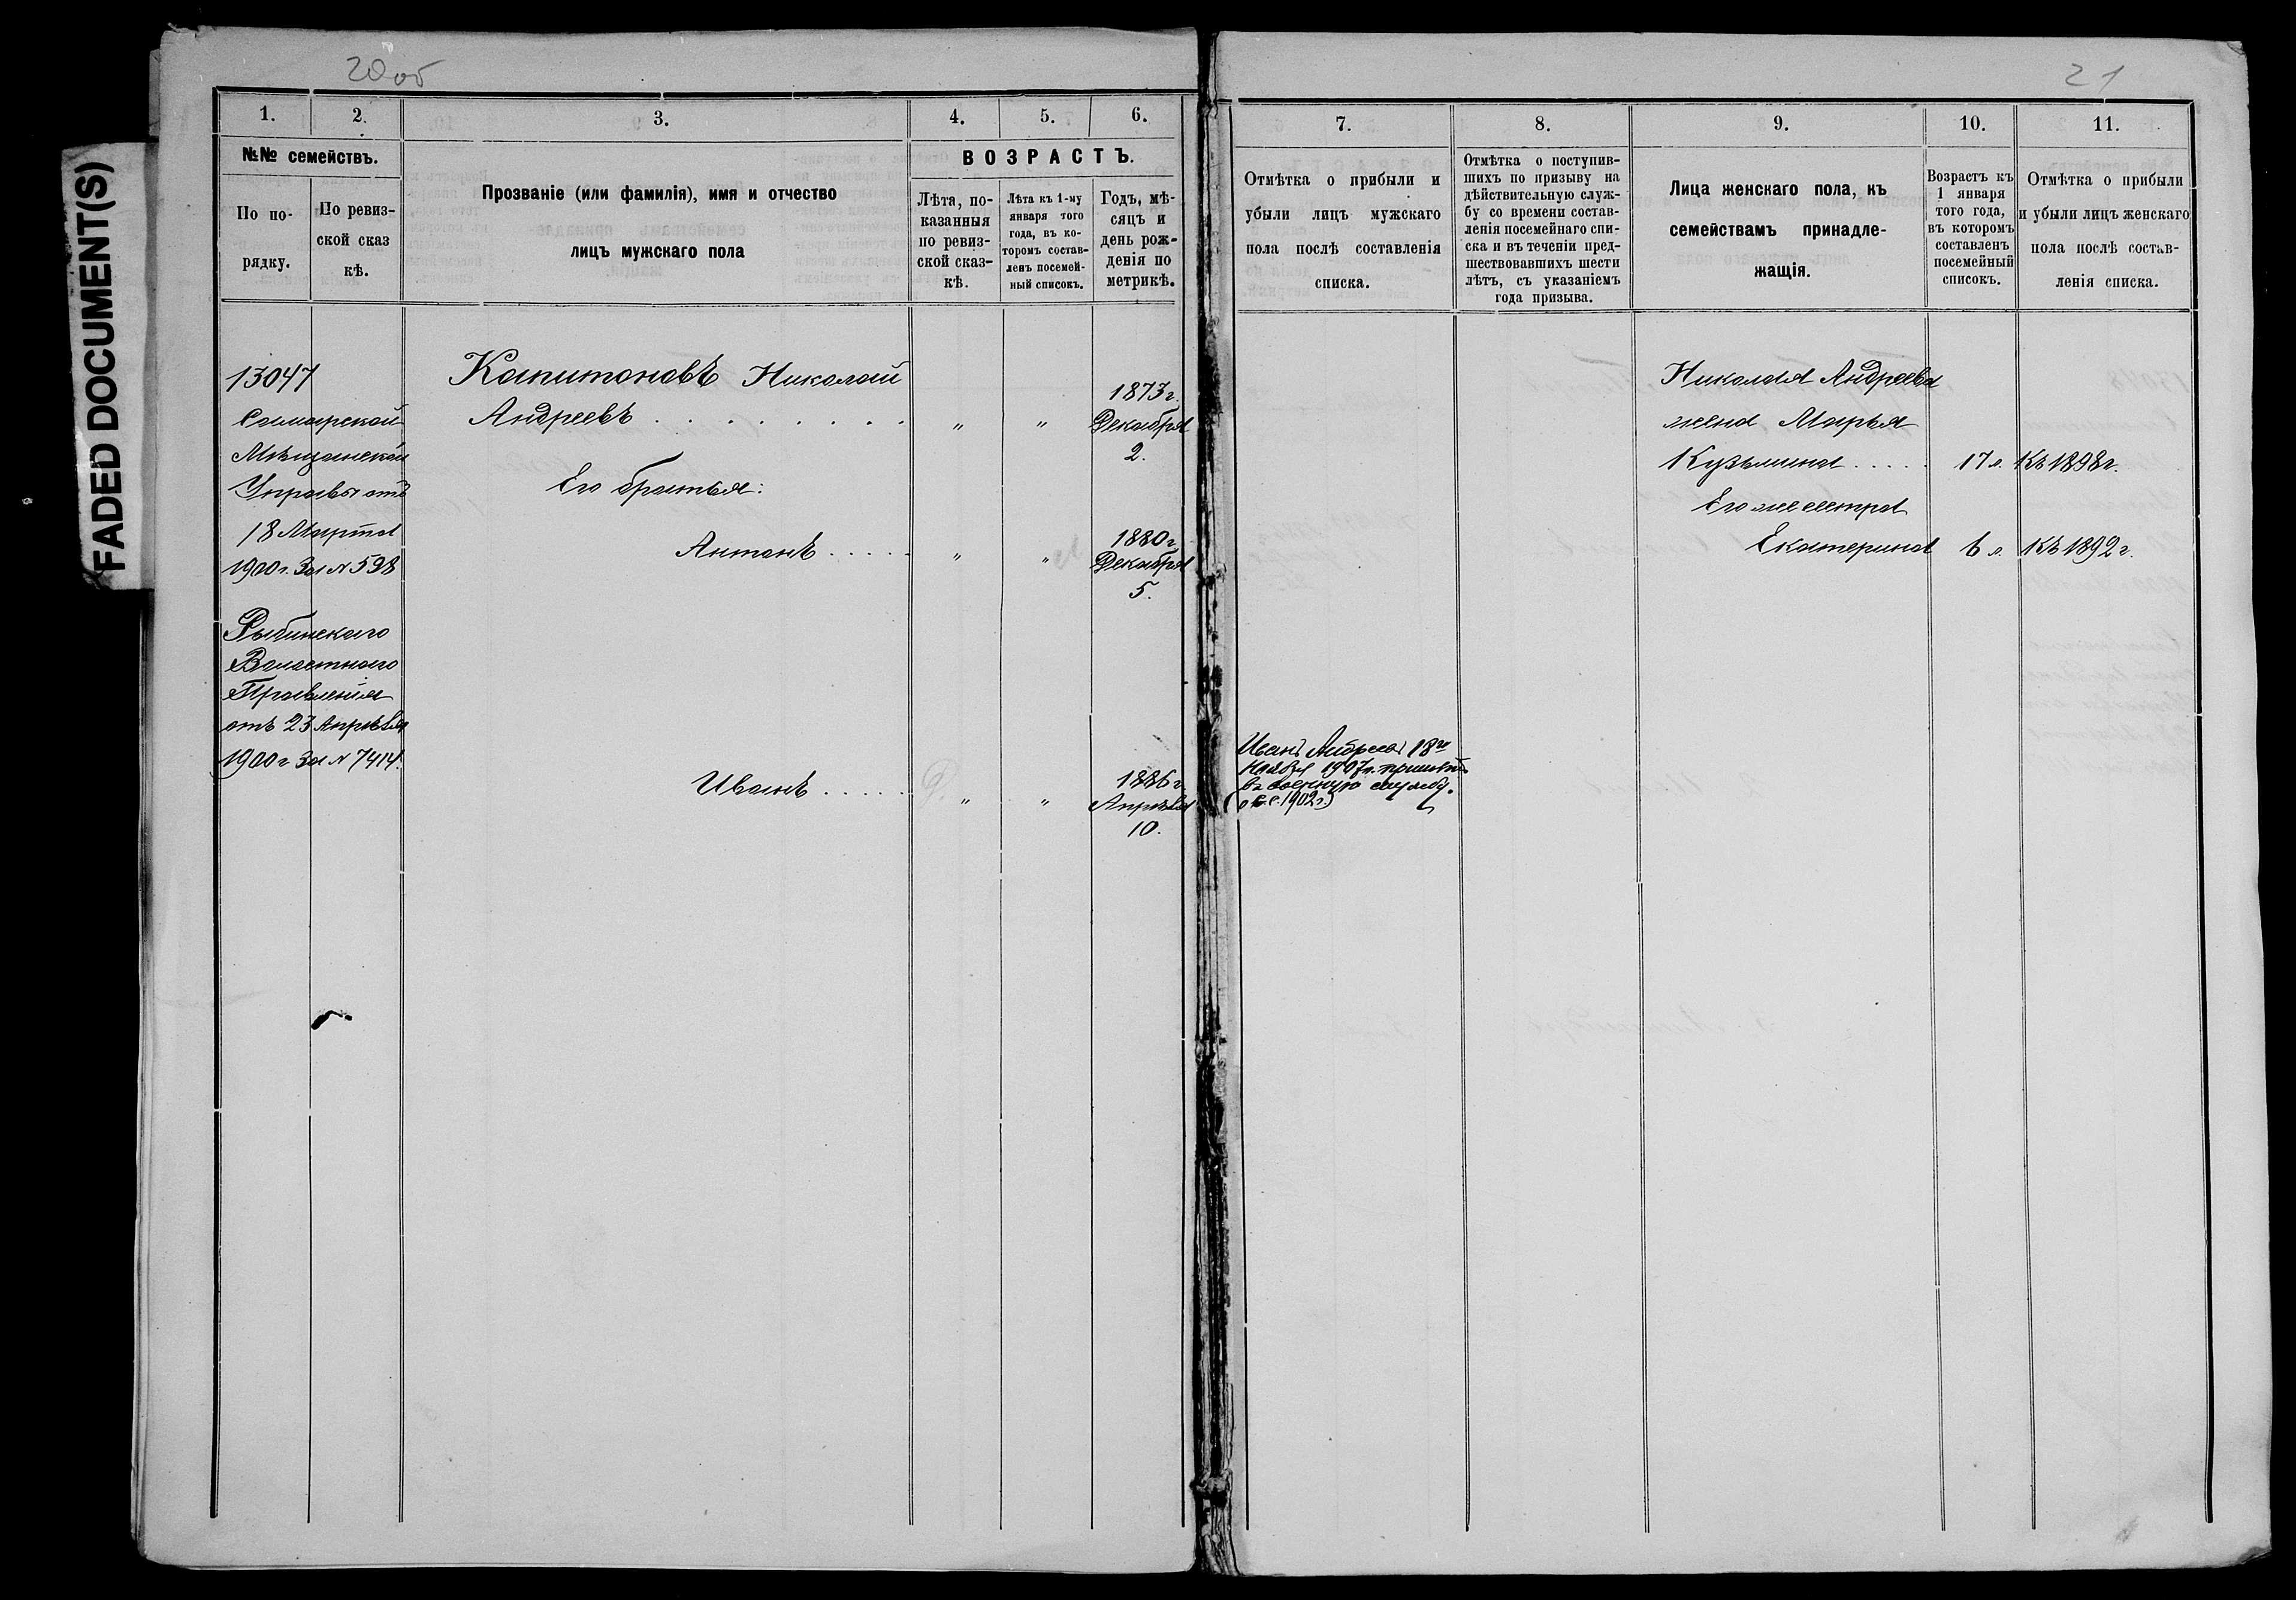 FADED DOCUMENT(S)
20 об
1.
2.
3.
4.
5.
6.
№№ семействъ.
По по-
рядку.
По ревиз-
ской сказ
кѣ.
Прозваніе (или фамилія), имя и отчество
лицъ мужскаго пола
ВОЗРАСТЪ.
Лѣта, по-
казанныя
по ревиз-
ской сказ-
кѣ.
Лѣта къ 1-му
января того
года, въ ко-
торомъ состав-
ленъ посемей-
ный списокъ.
Годъ, мѣ-
сяцъ и
день рож-
денія по
метрикѣ.
13047
Самарской
Мѣщанской
Управы отъ
18 Марта
1900 г. За № 598
Рыбинскаго
Волостного
Правленія
отъ 23 Апрѣля
1900 г За № 7414.
Капитоновъ Николай
Андреевъ . . . . . . . .
" "
1873 г.
Декабря
2.
Его братья:
Антонъ . . . . .
" "
1880 г.
Декабря
5.
Иванъ . . . . .
" "
1886 г.
Апрѣля
10.
21
7.
8.
9.
10.
11.
Отмѣтка о прибыли и
убыли лицъ мужскаго
пола послѣ составленія
списка.
Отмѣтка о поступив-
шихъ по призыву на
дѣйствительную служ-
бу со времени состав-
ленія посемейнаго спи-
ска и въ теченіи пред-
шествовавшихъ шести
лѣтъ, съ указаніемъ
года призыва.
Лица женскаго пола, къ
семействамъ принадле-
жащія.
Возрастъ къ
1 января
того года,
въ которомъ
составленъ
посемейный
списокъ.
Отмѣтка о прибыли
и убыли лицъ женскаго
пола послѣ состав-
ленія списка.
Иванъ Андреевъ 18го
Ноября 1907 г. принятъ
въ военную службу.
1902 г.)
Николая Андреева
жена Марья
Кузьмина . . . . . 17 л. Къ 1898 г.
Его же сестра
Екатерина 6 л. Къ 1892 г.